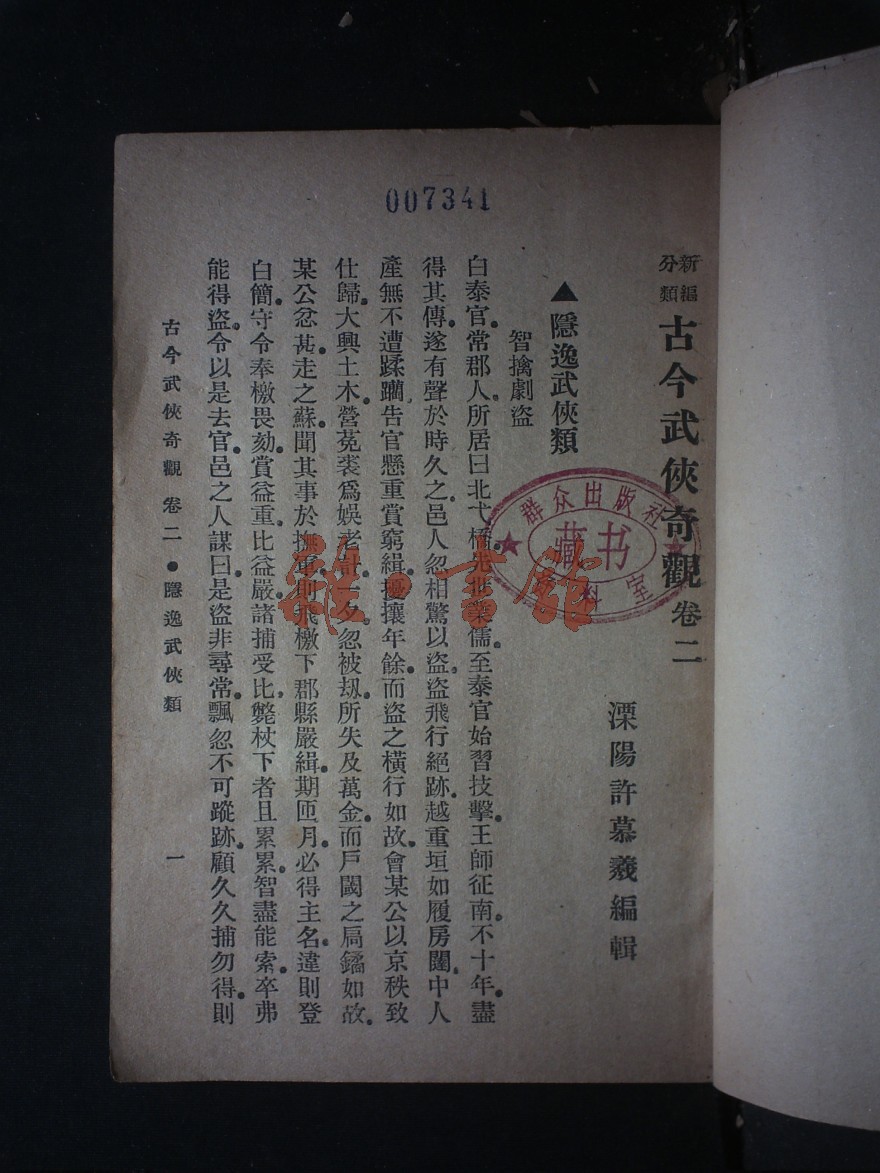 007341
新編分類 古今武俠奇觀 卷二
溧陽許慕羲編輯
▲隱逸武俠類
智擒劇盜
白泰官。常郡人。所居曰北弋橋。先世業儒。至泰官始習技擊。王師征南。不十年。盡
得其傳。遂有聲於時久之。邑人忽相驚以盜。盜飛行絕跡。越重垣如履房闥。中人
產無不遭蹂躪。告官懸重賞窮緝。擾攘年餘。而盜之橫行如故。會某公以京秩致
仕歸。大興土木。營菟裘爲娛老計。一夕。忽被刧。所失及萬金。而戶闥之扃鐍如故。
某公忿甚。走之蘇。聞其事於撫軍。則飛檄下郡縣嚴緝。期匝月。必得主名。違則登
白簡。守令奉檄畏劾。賞益重。比益嚴。諸捕受比。斃杖下者且累累。智盡能索。卒弗
能得盜。令以是去官。邑之人謀曰。是盜非尋常。飄忽不可蹤跡。顧久久捕勿得。則
古今武俠奇觀 卷二 ●隱逸武俠類 一
群众出版社
藏书
料室
雜·書館